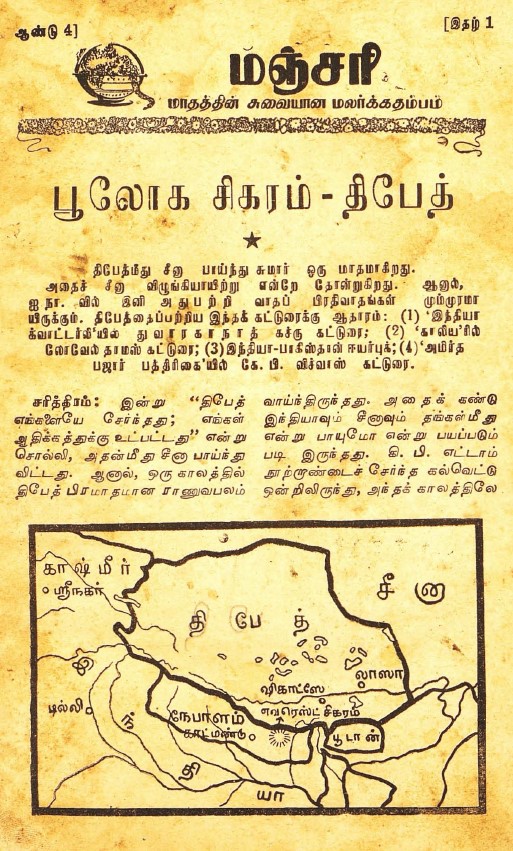 ஆண்டு 4]
[இதழ் 1
மஞ்சரி
மாதத்தின் சுவையான மலர்க்கதம்பம்
பூலோக சிகரம் - திபேத்
★
திபேத்மீது சீனு பாய்ந்து சுமார் ஒரு மாதமாகிறது.
அதைச் சீனு விழுங்கியாயிற்று என்றே தோன்றுகிறது. ஆனுல்,
ஐ நா. வில் இனி அதுபற்றி வாதப் பிரதிவாதங்கள் மும்முரமா
யிருக்கும். திபேத்தைப்பற்றிய இந்தக் கட்டுரைக்கு ஆதாரம்: (1) 'இந்தியா
க்வாட்டர்லி'யில் துவாரகாநாத் கச்ரு கட்டுரை; (2) 'காலிய'ரில்
லோவேல் தாமஸ் கட்டுரை; (3) இந்தியா-பாகிஸ்தான் ஈயர்புக்; (4) 'அமிர்த
பஜார் பத்திரிகை'யில் கே. பி. விச்வாஸ் கட்டுரை.
சரித்திரம்: இன்று "திபேத்
எங்களையே சேர்ந்தது; எங்கள்
ஆதிக்கத்துக்கு உட்பட்டது" என்று
சொல்லி, அதன்மீது சீனா பாய்ந்து
விட்டது. ஆனால், ஒரு காலத்தில்
திபேத் பிரமாதமான ராணுவபலம்
வாய்ந்திருந்தது. அதைக் கண்டு
இந்தியாவும் சீனாவும் தங்கள்மீது
என்று பாயுமோ என்று பயப்படும்
படி இருந்தது. கி. பி. எட்டாம்
நூற்றாண்டைச் சேர்ந்த கல்வெட்டு
ஒன்றிலிருந்து, அந்தக் காலத்திலே
காஷ்மீர்
ஸ்ரீநகர்
சீனா
திபேத்
லாஸா
ஷிகாட்ஸே
டில்லி
நேபாளம்
எவரெஸ்ட் சிகரம்
காட்மண்டு
பூடான்
இந்தியா